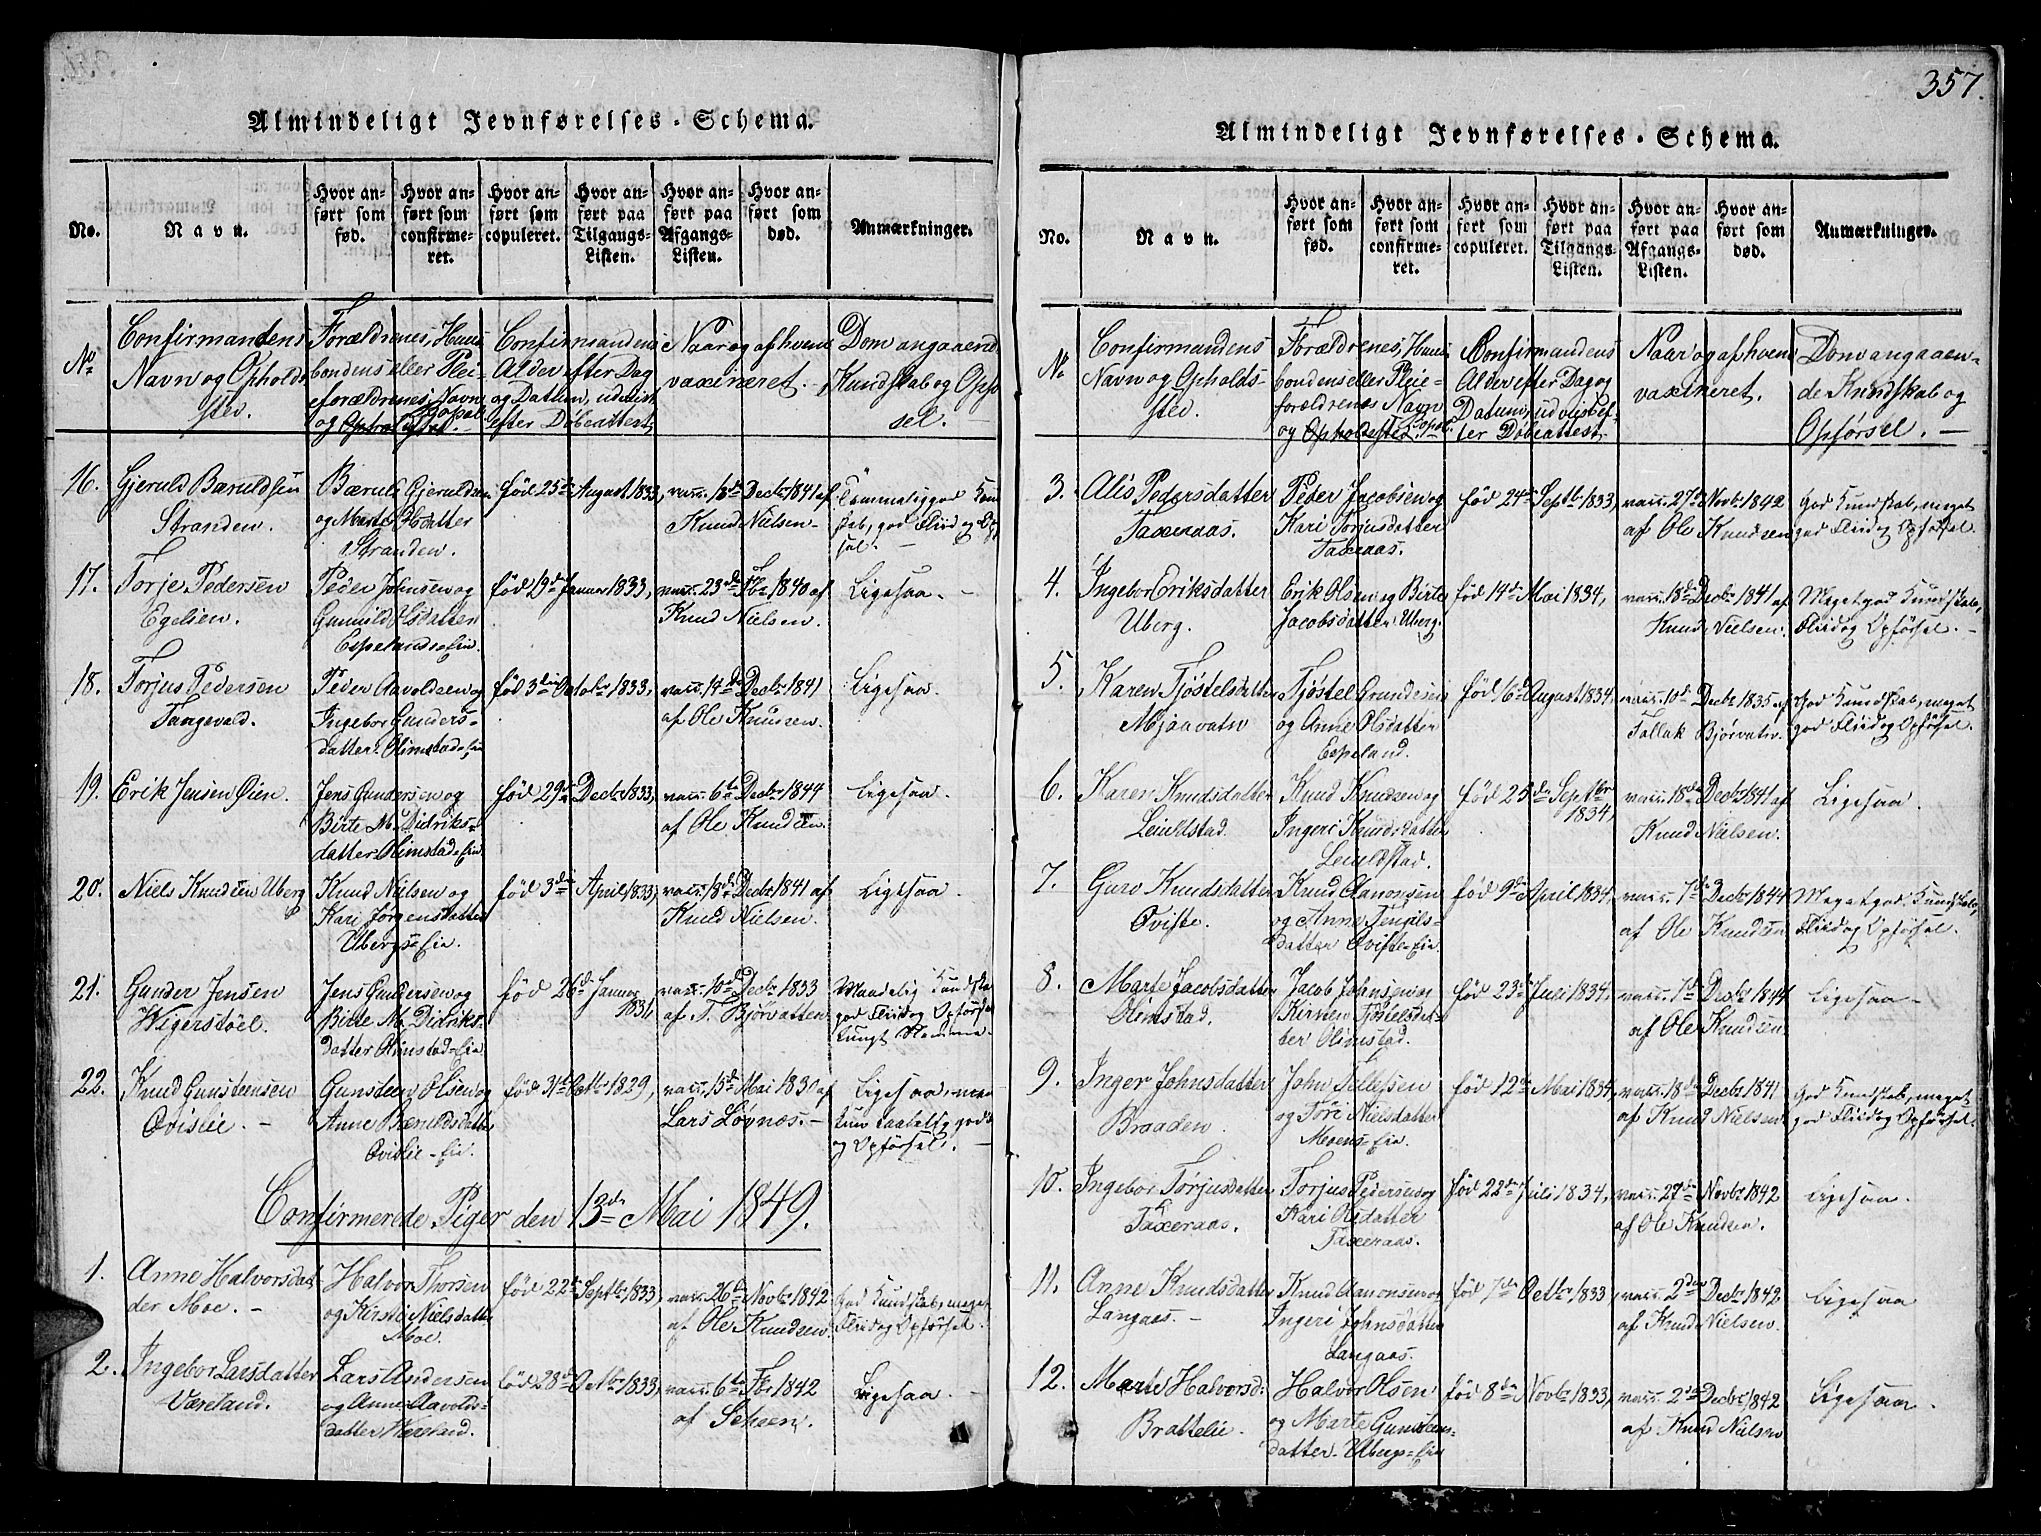 357.
Almindeligt Jevnførelses-Schema.
No.
Navn.
Hvor anført som fød.
Hvor anført som confirmeret.
Hvor anført som copuleret.
Hvor anført paa Tilgangs-Listen.
Hvor anført paa Afgangs-Listen.
Hvor anført som død.
Anmærkninger.
No
Confirmandens
Navn og Opholds
sted.
Forældrenes, Huus
bondens eller Plei-
eforældrenes Navn
og Opholdssted.
Confirmandens
Alder efter Dag
og Datum, udviist
efter Døbeattest,
Naar og af hvem
vaxineret.
Dom angaaend
Kundskab og Opfør
sel. —
16. Gjeruld Bæruldsen
Stranden.
Bæruld Gjeruldsen
og Marte Olsdatter
Stranden.
fød 25de August 1833,
vacc. 18de Decbr 1841 af
Knud Nielsen
god Flid og
sel. —
17. Torje Pedersen
Egelien.
Peder Johnsen og
Gunnild Olsdatter
Espelands Eie.
fød 19de Januar 1833,
vacc. 23de 1840 af
Knud Nielsen.
Ligesaa. —
18. Torjus Pedersen
Tangevald.
Peder Aavoldsen og
Ingebor Gunders-
datter Olimstads Eie
fød 3die Octobr 1833,
vacc. 14de Decbr 1841
af Ole Knudsen.
Ligesaa.
19. Erik Jensen Øien.
Jens Gundersen og
Birte M. Didriks-
datter Olimstad-Eie.
fød 29de Decbr 1833,
vacc. 6te Decbr 1844
af Ole Knudsen.
Ligesaa.
20. Niels Knudsen Uberg
Knud Nielsen og
Kari Jørgensdatter
Ubergs-Eie.
fød 3die April 1833,
vacc. 18de Decbr 1841 af
Knud Nielsen.
Ligesaa.
21. Gunder Jensen
Wigerstøel.
Jens Gundersen og
Birte M. Didriks-
datter Olimstad-Eie.
fød 26de Januar
1831,
vacc. 10de Decbr 1833
af T. Bjørvatten
Maadelig Kundska
god Flid og Opførsel
tungt Nemme
22. Knud Gunsteensen
Ovislie. —
Gunsteen Olsen og
Anne Bæruldsdatter
Ovislie-Eie.
fød 31te Octbr 1829,
vacc. 15de Mai 1830 af
Lars Løvnæs. —
Ligesaa, men
kun taalelig god
og Opførsel. —
Confirmerede Piger den 13de Mai 1849.
1. Anne Halvorsdat
der Moe. —
Halvor Thorsen
og Kirsti Nielsdatter
Moe.
fød 22de Septbr 1833,
vacc. 26de Novbr 1842
af Ole Knudsen.
God Kundskab, meget
Flid og Opførsel.
2. Ingebor Larsdatter
Væreland.
Lars Andersen
og Anne Aavolds-
datter Wæreland.
fød 28de Octbr 1833,
vacc. 6te 1842
af Scheen.
Ligesaa. —
Almindeligt Jevnførelses-Schema.
No.
Navn.
Hvor anført som fød.
Hvor anført som confirmeret.
Hvor anført som copuleret.
Hvor anført paa Tilgangs-Listen.
Hvor anført paa Afgangs-Listen.
Hvor anført som død.
Anmærkninger.
No
Confirmandens
Navn og Opholds-
sted.
Forældrenes, Huus
bondens eller Pleie-
forældrenes Navn
og Opholdssted.
Confirmandens
Alder efter Dag og
Datum, udviist ef-
ter Døbeattest.
Naar og af hvem
vaxineret.
Dom angaaen-
de Kundskab og
Opførsel. —
3. Alis Pedersdatter
Taxeraas.
Peder Jacobsen og
Kari Torjusdatter
Taxeraas.
fød 24de Septbr 1833,
vacc. 27de Novbr 1842
af Ole Knudsen
God Kundskab, meget
god Flid og Opførsel.
4. Ingebor Eriksdatter
Uberg.
Erik Olsen og Birte
Jacobsdatter Uberg.
fød 14de Mai 1834,
vacc. 18de Decbr 1841 af
Knud Nielsen.
Meget god Kundskab,
Flid og Opførsel. —
5. Karen Tjøstelsdatter
Mjaavatn
Tjøstel Gundersen
og Anne Olsdatter
Espeland.
fød 16de August 1834,
vacc. 10de Decbr 1835 af
Tallak Bjørvatn.
God Kundskab, meget
god Flid og Opførsel.
6. Karen Knudsdatter
Leiuldstad.
Knud Knudsen og
Ingeri Knudsdatter
Leiuldstad.
fød 25de Septbr
1834,
vacc. 18de Decbr 1841 af
Knud Nielsen.
Ligesaa.
7. Guro Knudsdatter
Oviste.
Knud Aanonsen
og Anne Tengils-
datter Oviste-Eie
fød 9de April 1834,
vacc. 7de Decbr 1844
af Ole Knudsen
Meget god Kundskab,
Flid og Opførsel.
8. Marte Jacobsdatter
Olimstad.
Jacob Johnsen og
Kirsten Tjøstelsdat-
ter Olimstad.
fød 23de Juli 1834,
vacc. 7de Decbr 1844
af Ole Knudsen
Ligesaa —
9. Inger Johnsdatter
Braaden.
John Tellefsen
og Tøri Nielsdatter
Moens-Eie.
fød 12te Mai 1834,
vacc. 18de Decbr 1841
af Knud Nielsen
God Kundskab, meget
god Flid og Opførsel.
10. Ingebor Torjusdatter
Taxeraas.
Torjus Pedersen og
Kari Olsdatter
Taxeraas.
fød 22de Juli 1834,
vacc. 27de Novbr 1842
af Ole Knudsen.
Ligesaa.
11. Anne Knudsdatter
Langaas. —
Knud Aanonsen og
Ingeri Johnsdatter
Langaas.
fød 7de Octbr 1833,
vacc. 2den Decbr 1842
af Knud Nielsen.
Ligesaa
12. Marte Halvorsd:
Brattelie.
Halvor Olsen
og Marte Gunsteens-
datter Ubergs-Eie
fød 8de Novbr 1833,
vacc. 2den Decbr 1842
af Knud Nielsen
Ligesaa.